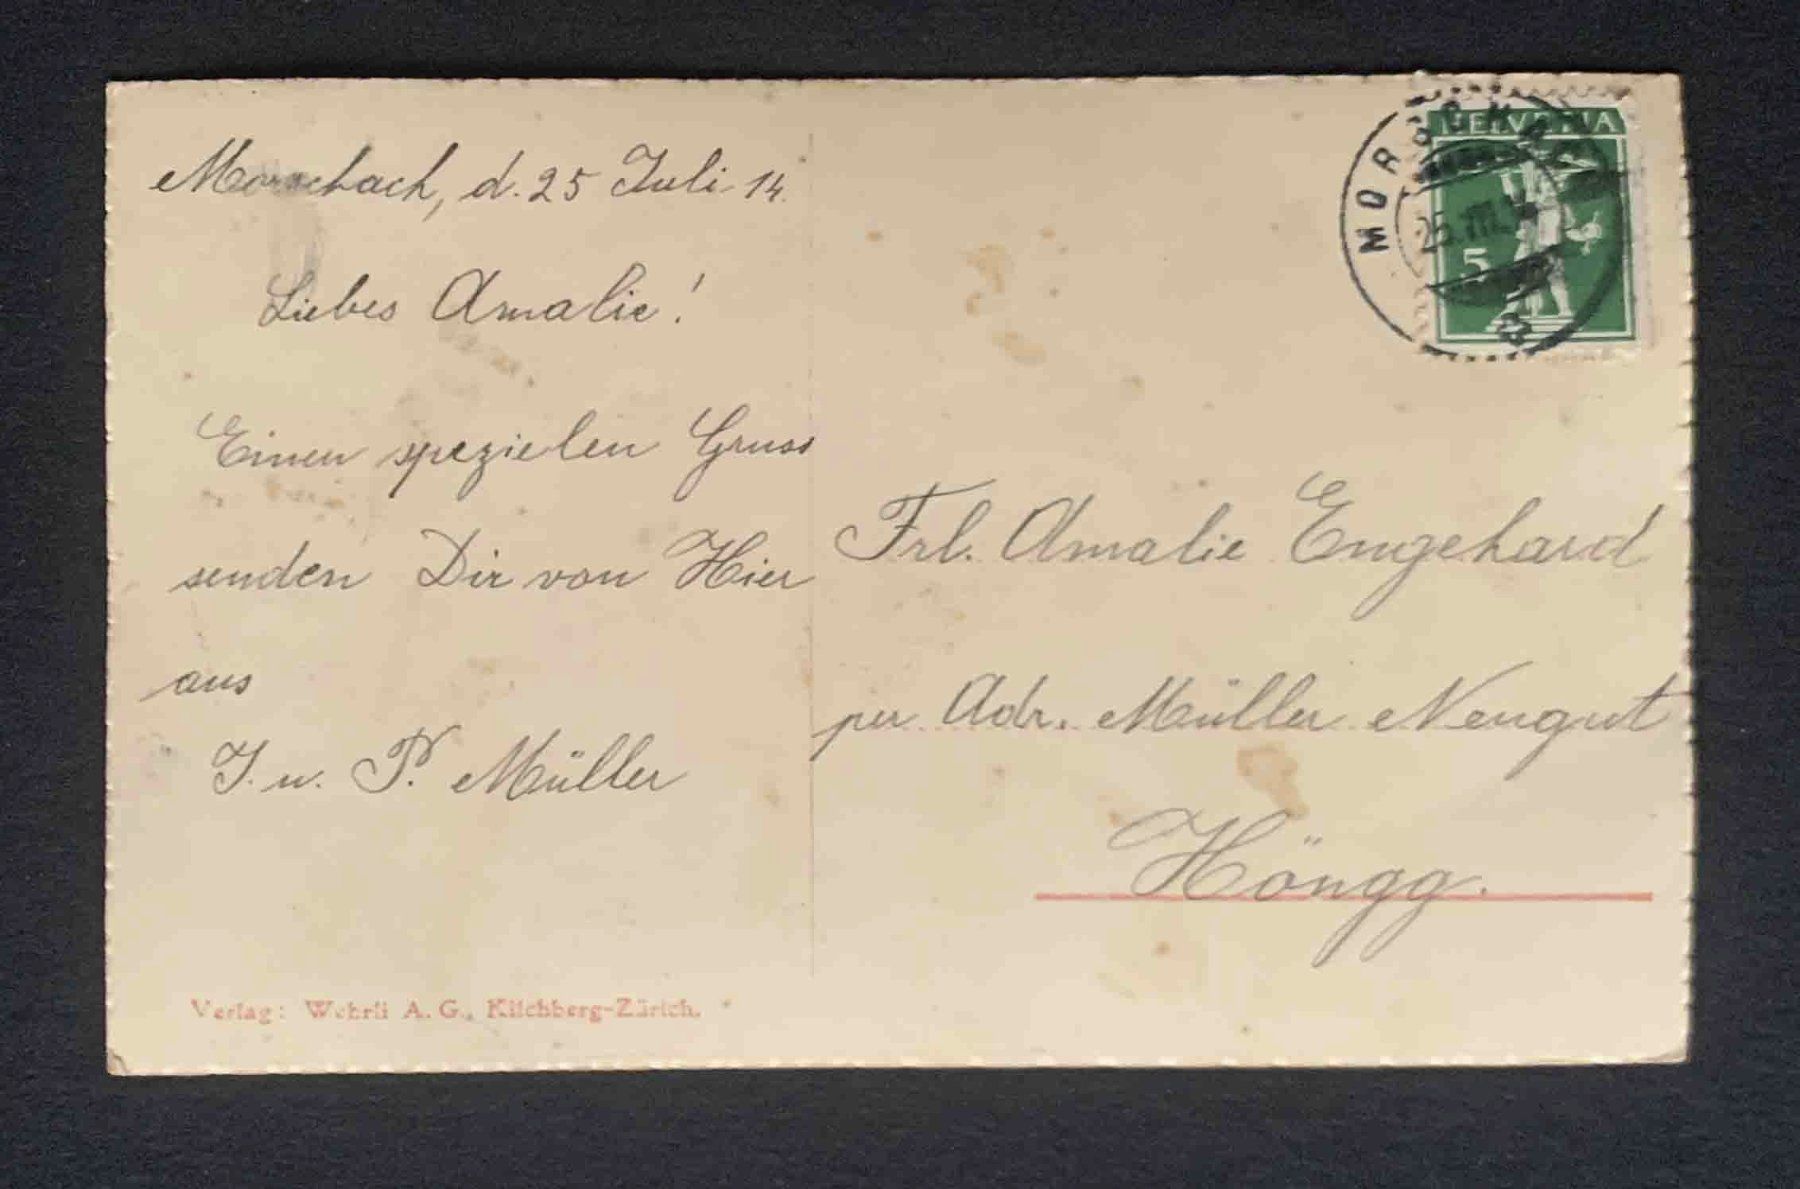 Morschach, d. 25 Juli 14.
Liebes Amalie!
Einen spezielen Gruss
senden Dir von Hier
aus
J. u. P. Müller
Verlag: Wehrli A. G., Kilchberg-Zürich.
MORSCHACH
25.VII.14
HELVETIA
5
Frl. Amalie Engehard
per Adr. Müller Neugut
Höngg.